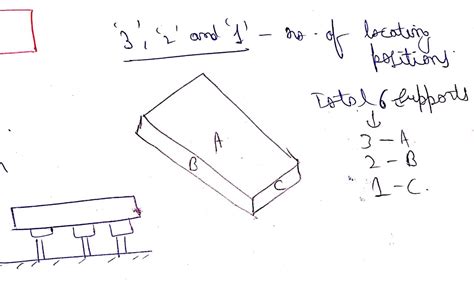 '3', '2' and '1' - no. of locating
positions.
Total 6 supports
3 - A
2 - B
1 - C.
A
B
C